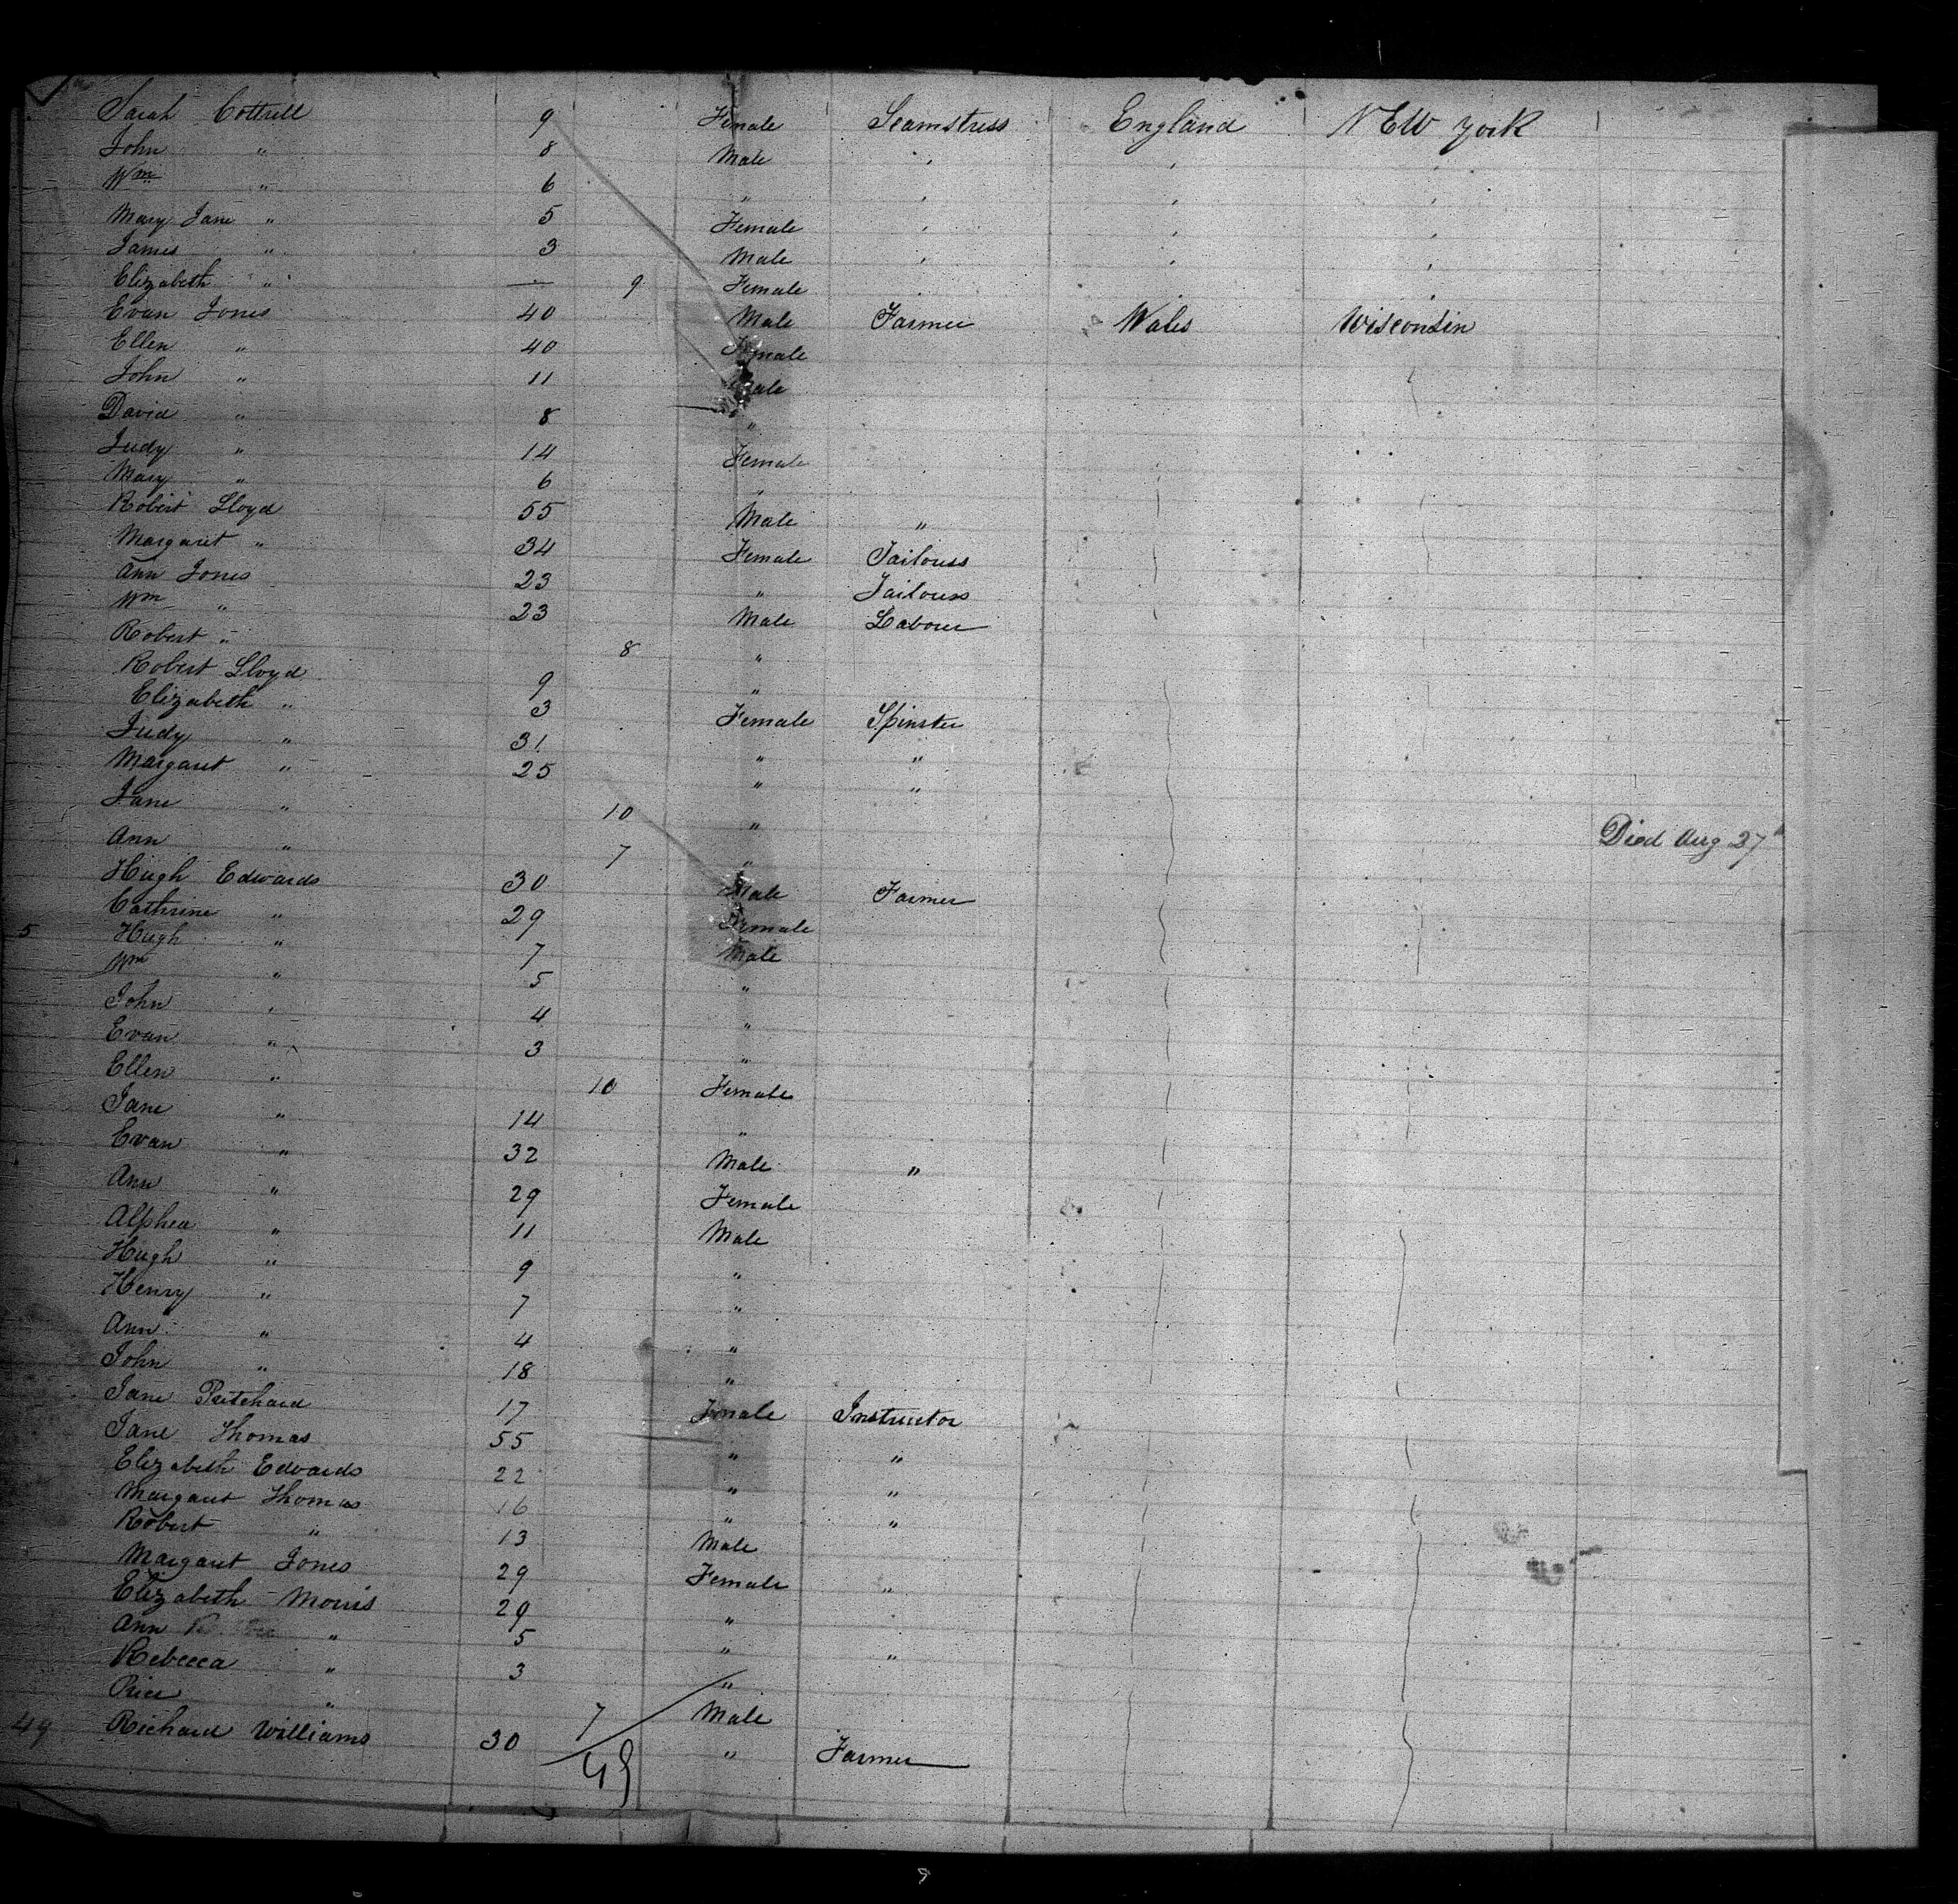 Sarah Cottrell 9 Female Seamstress England NEW York
John " 8 Male " " "
Wm " 6 " " " "
Mary Jane " 5 Female " " "
James " 3 Male " " "
Elizabeth " — 9 Female " " "
Evan Jones 40 Male Farmer Wales Wisconsin
Ellen " 40 Female
John " 11 Male
David " 8 "
Judy " 14 Female
Mary " 6 "
Robert Lloyd 55 Male "
Margaret " 34 Female Tailouss
Ann Jones 23 " Tailouss
Wm " 23 Male Labourer
Robert " 8 "
Robert Lloyd 9 "
Elizabeth " 3 Female Spinster
Judy " 31 " "
Margaret " 25 " "
Jane " 10 " Died Aug 27
Ann " 7 "
Hugh Edwards 30 Male Farmer
Cathrine " 29 Female
5 Hugh " 7 Male
Wm " 5 "
John " 4 "
Evan " 3 "
Ellen " 10 Female
Jane " 14 "
Evan " 32 Male "
Ann " 29 Female
Alphea " 11 Male
Hugh " 9 "
Henry " 7 "
Ann " 4 "
John " 18 "
Jane Pritchard 17 Female Instructor
Jane Thomas 55 " "
Elizabeth Edwards 22 " "
Margaret Thomas 16 " "
Robert " 13 Male
Margaret Jones 29 Female "
Elizabeth Morris 29 "
Ann " 5 " "
Rebecca " 3 "
Price " 7 Male
49 Richard Williams 30 " Farmer
49